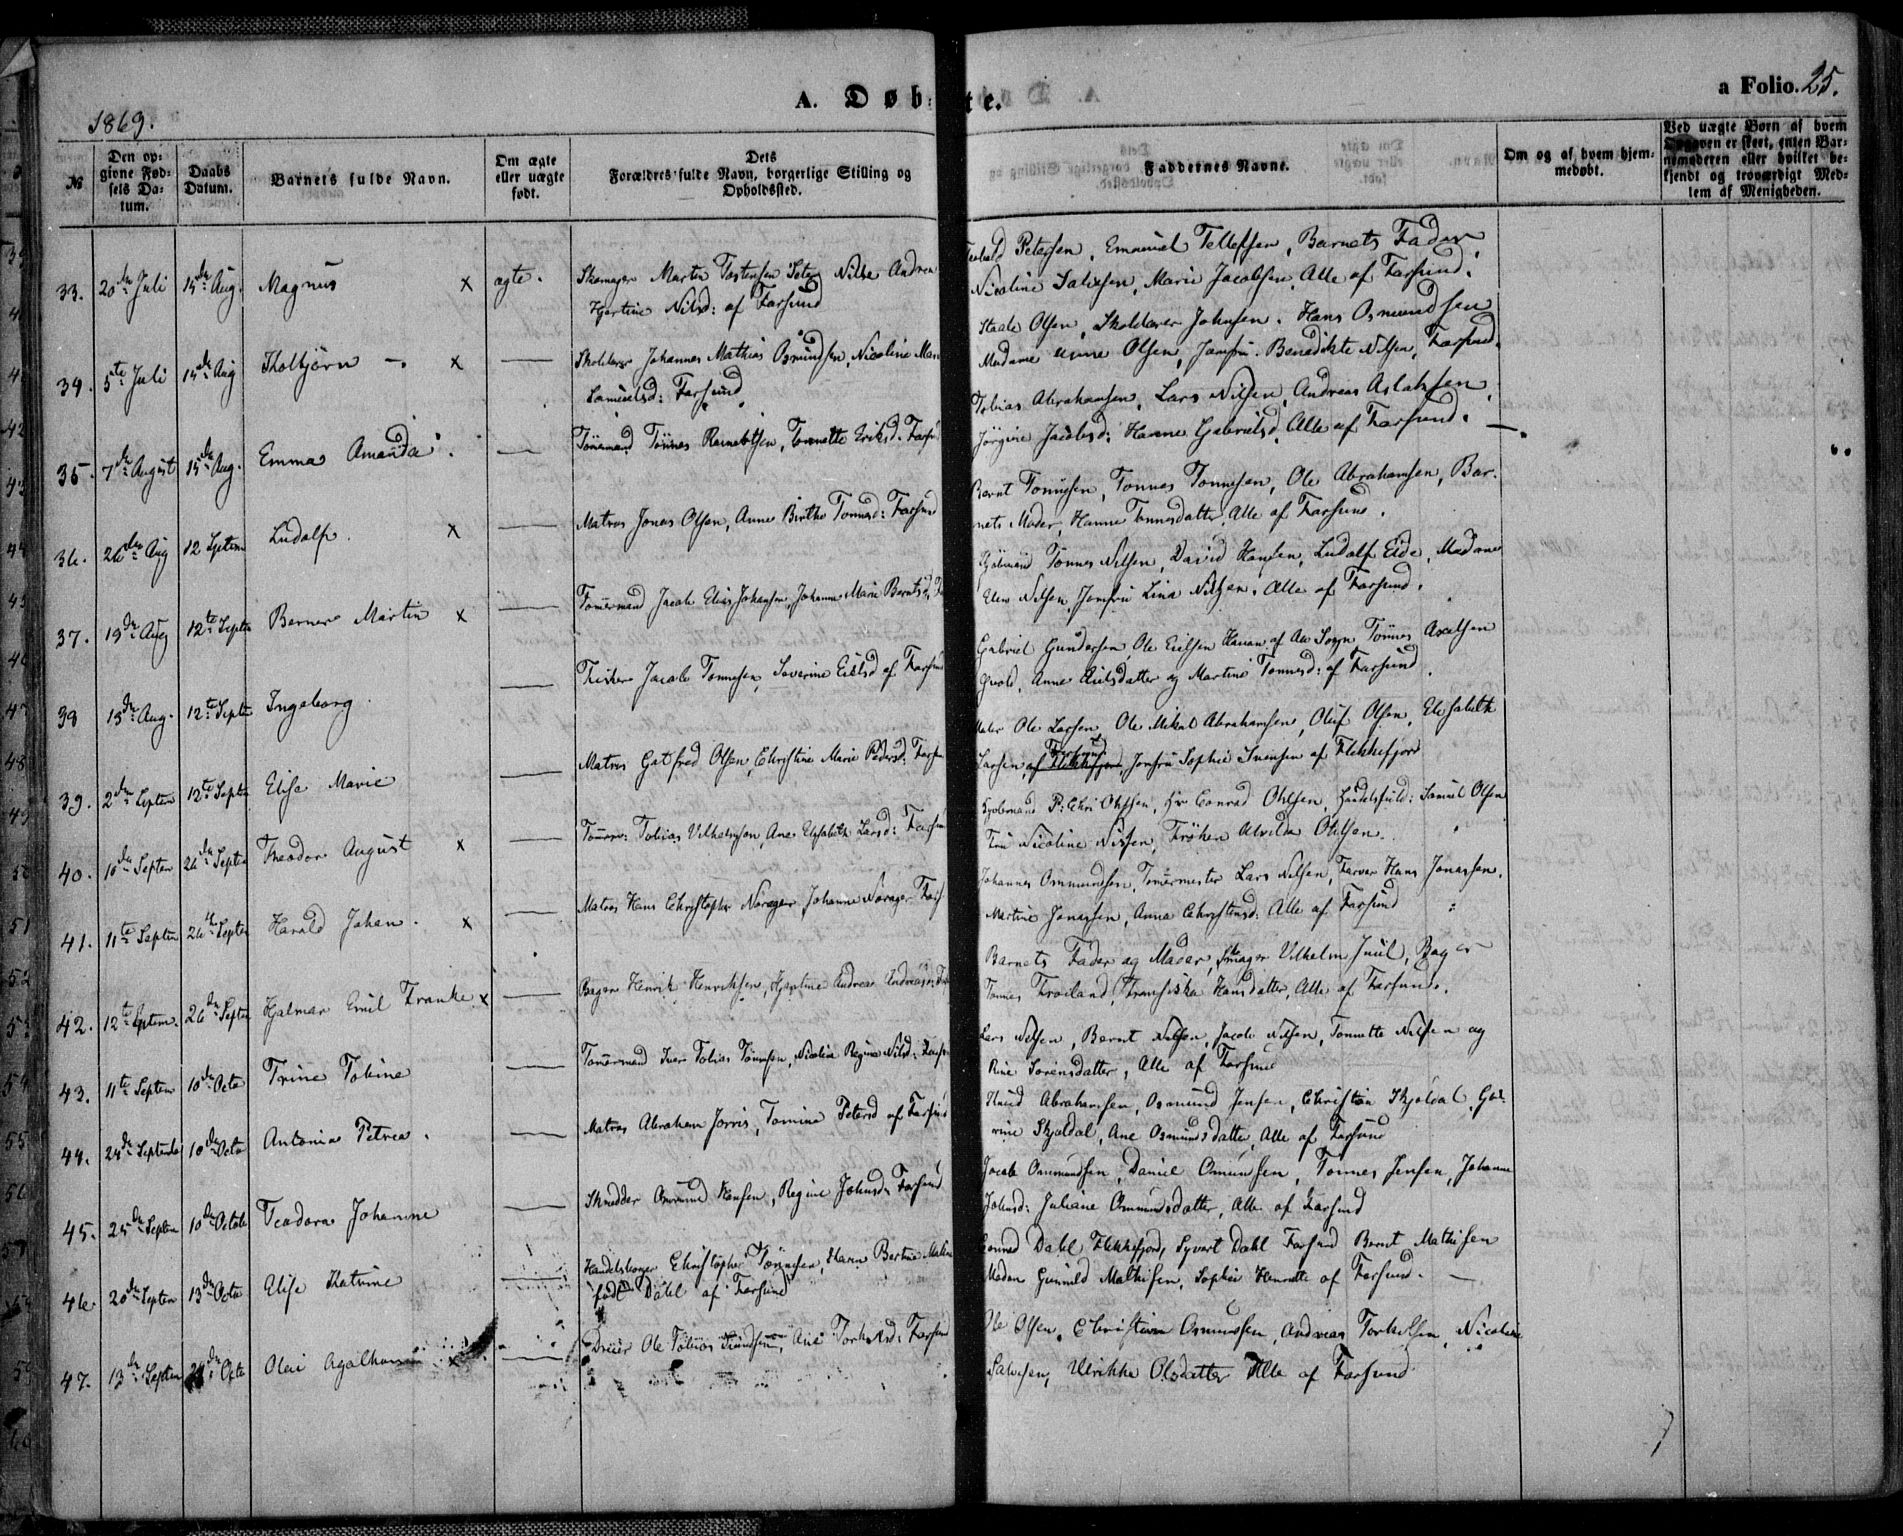 1869.
A. Døbte.
a Folio. 25.
№
Den opgivne Fødsels Datum.
Daabs Datum.
Barnets fulde Navn.
Om ægte eller uægte født.
Dets Forældres fulde Navn, borgerlige Stilling og Opholdssted.
Faddernes Navne.
Om og af hvem hjemmedøbt.
Ved uægte Børn af hvem Opgaven er skeet, enten Barnemoderen eller hvilket bekjendt og troværdigt Medlem af Menigheden.
33. 20de Juli 15de Aug. Magnus x ægte. Skomager Martin Tostensen Nilse Andrea
Hjertine Nilsd: af Farsund
Petersen, Emanuel Tellefsen, Barnets Fader,
Nicoline Salvesen, Marie Jacobsen, Alle af Farsund.
34. 5te Juli 15de Aug Tholbjörn - x — Skolelærer Johannes Mathias Osmundsen, Nicoline
Samuelsd: Farsund
Staale Olsen, Skolelærer Johnsen. Hans Osmundsen
Madame Olsen, Jomfru Benedikte Nilsen, Farsund.
35. 7de August 15de Aug. Emma Amanda. — Tönnes Reinertsen, Tonnette Eriksd: Farsund
Tobias Abrahamsen, Lars Nilsen, Andreas Aslaksen,
Jörgine Jacobsd: Hanne Gabrielsd, Alle af Farsund.
36. 26de Aug 12 Septem Ludolf. x — Matros Jonas Olsen, Anne Birthe Tonnesd: Farsund
Bernt Tonnesen, Tonnes Tonnesen, Ole Abrahamsen, Bar-
nets Moder, Hanne Tonnesdatter, Alle af Farsund.
37. 19de Aug 12te Septem Berner Martin x — Tömmermand Jacob Elias Johansen, Johanne Marie Berntsd,
Tonnes Nilsen, David Hansen, Ludolf Eide, Madame
Elen Nilsen, Jomfru Lina Nilsen. Alle af Farsund.
38 15de Aug. 12te Septe Ingeborg. — Fisker Jacob Tonnesen, Severine Eilsd af Farsund
Gabriel Gundersen, Ole Eielsen Hanan af Sogn Tönnes Axelsen
Anne Eielsdatter og Martine Tonnesd: af Farsund.
39. 2den Septem 12te Septe Elise Marie — Matros Gotfred Olsen, Christine Marie Pedersd: Farsun
Maler Ole Larsen, Ole Mikal Abrahamsen, Oluf Olsen, Elisabeth
Larsen, af Farsund Jomfru Sophie Svensen af Flekkefjord
40. 10de Septem 26de Septe Theodor August x — Tömmerm: Tobias Vilhelmsen, Ane Elisabeth Larsd: Farsun
P: Chri Ohlsen, Hr Conrad Ohlsen, Handelsfuld: Samuel Olsen
Fru Nicoline Nilsen, Fröken Alvilda Ohlsen.
41. 11te Septem 26de Septem Harald Johan. x — Matros Hans Christopher Norager Johanne Norager Fars
Johannes Ommundsen, Tömermester Lars Nilsen, Farver Hans Jonassen.
Martine Jonassen, Anna Christensd: Alle af Farsund
42. 12te Septem. 26de Septem Hjalmar Emil Franke x — Bager Henrik Henriksen, Andrea Andreasen,
Barnets Fader og Moder, Vilhelm Juul, Bager
Tonnes Froiland, Fransiska Hansdatter, Alle af Farsund.
43. 11te Septem 10de Octo Trine Tobine — Tömmermand Iver Tobias Tönnesen, Nicolia Regine Nilsd:
Lars Nilsen, Bernt Nilsen, Jacob Nilsen, Tonnette Nilsen og
Rine Sorensdatter, Alle af Farsund
44. 24de Septembr 10de Octo Antonia Petrea. — Matros Abraham Jorris, Tomine Petersd af Farsund
Knud Abrahamsen, Osmund Jensen, Christian Skjoldal, Gu-
rine Skjoldal, Ane Osmundsdatter, Alle af Farsund
45. 25de Septem 10de Octobe Teodora Johanne — Skrædder Osmund Hansen, Regine Johnsd: Farsund
Jacob Ommundsen, Daniel Omundsen, Tonnes Jensen, Johanne
Johnsd: Juliane Ommundsdatter, Alle af Farsund
46. 20de Septem 13de Octo Elise Katrine — Handelsborger Christopher Tonnesen, Karen Bertine
født Dahl af Farsund
Dahl Flekkefjord, Syvert Dahl Farsund Bernt Mathisen
Madam Gunnild Mathisen, Sophie Henrette af Farsund. —
47. 13de Septem Octo Olai x — Dreier Ole Tobias Ane Torkelsd: Farsund
Ole Olsen, Christian Osmundsen, Andreas Torkelsen, Nicoline
Salvesen, Ulrikke Olsdatter Alle af Farsund